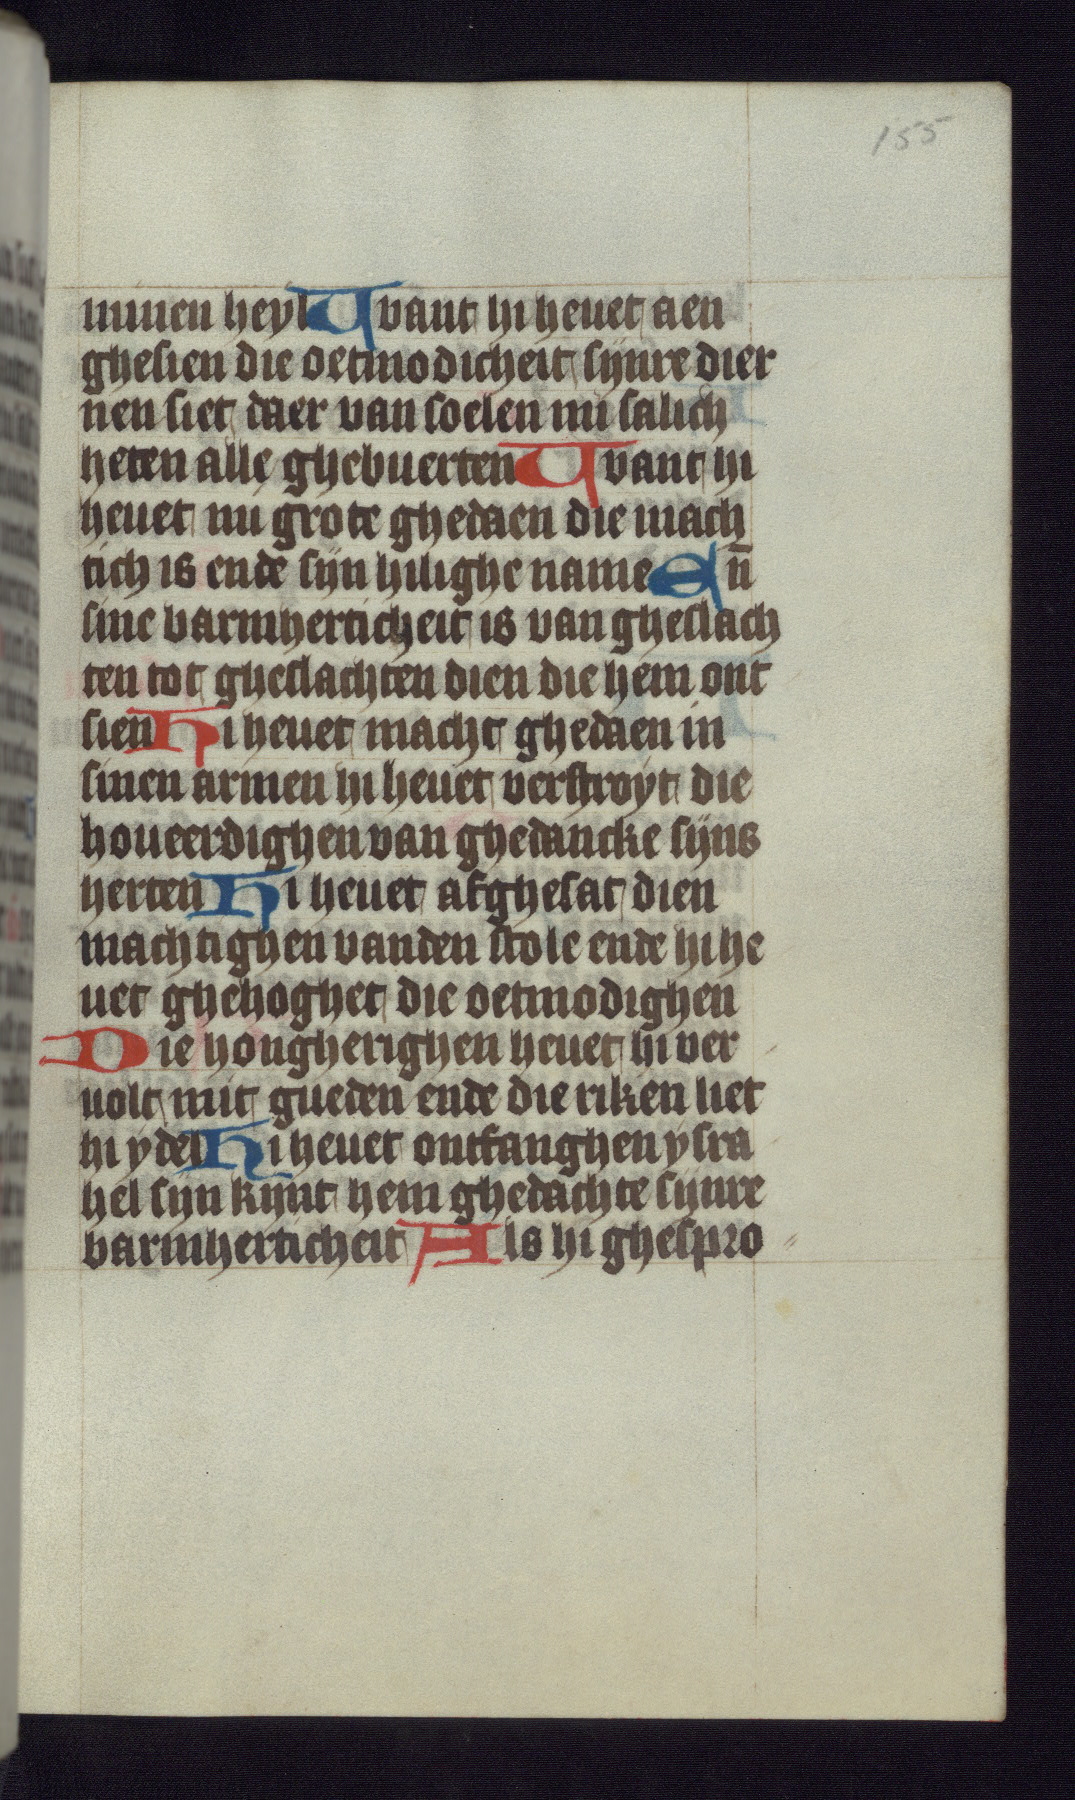 155
minen heyl Want hi heuet aen
ghesien die oetmodicheit sijnre dier
nen siet daer van soelen mi salich
heten alle ghebuerten Want hi
heuet mi grote ghedaen die mach
tich is ende sijn hilighe name En̄
sine barmherticheit is van gheslach
ten tot gheslachten dien die hem ont
sien Hi heuet macht ghedaen in
sinen armen hi heuet verstroyt die
houeerdighen van ghedancke sijns
herten Hi heuet afghesat dien
machtighen vanden stole ende hi he
uet ghehoghet die oetmodighen
Die hongherighen heuet hi ver
uolt mit gueden ende die riken liet
hi ydel Hi heuet ontfanghen ysra
hel sijn kijnt hem ghedachte sijnre
barmherticheit Als hi ghespro